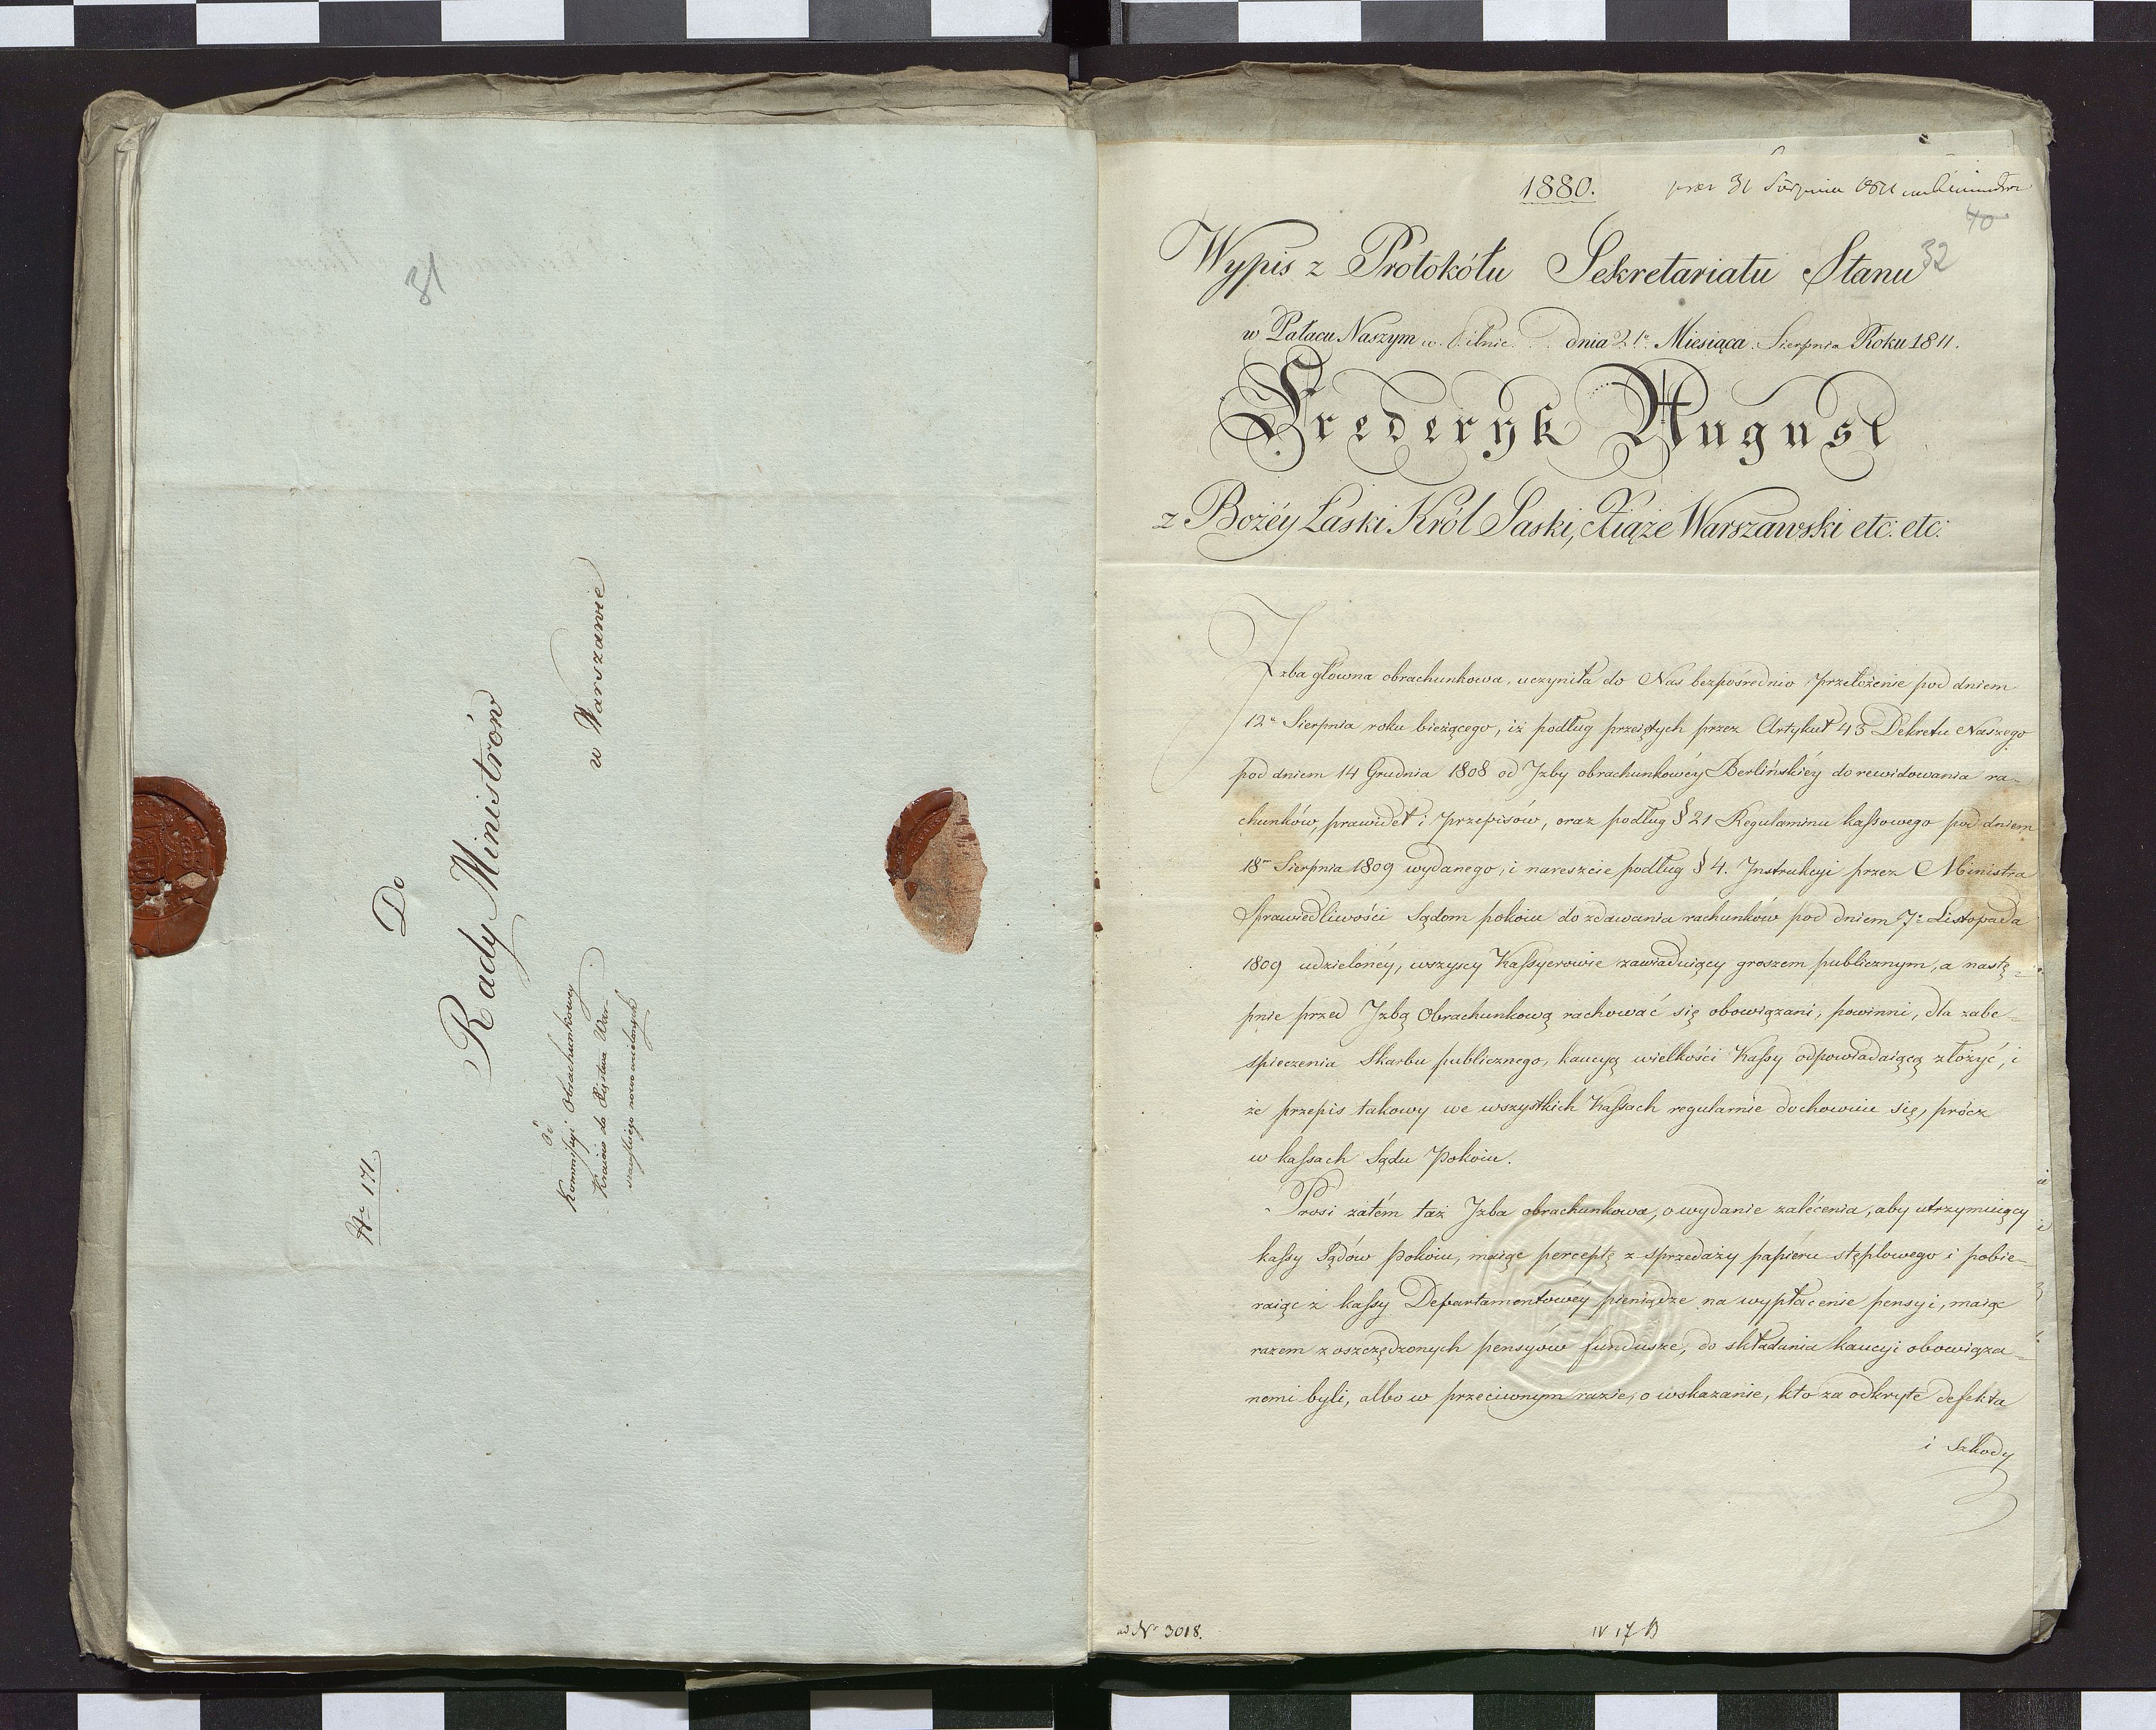 31
Do
Rady Ministrów
w Warszawie
od
Kommissyi Obrachunkowey
Kraiów do Xięstwa War-
szawskiego nowo wcielonych
N: 171.
1880.
prae: 31 Sierpnia 1811
40
32
Wypis z Protokółu Sekretariatu Stanu
w Pałacu Naszym w Pilnic dnia 21º Miesiąca Sierpnia Roku 1811.
Fryderyk August
z Bożéy Łaski Król Saski, Xiąże Warszawski etc: etc:
Izba głowna obrachunkowa, uczyniła do Nas bezpośrednio przełożenie pod dniem
12º Sierpnia roku bieżącego, iż podług przeiętych przez Artykuł 43 Dekretu Naszego
pod dniem 14 Grudnia 1808 od Jzby obrachunkowéy Berlińskiéy do rewidowania ra-
chunków, prawideł i przepisów, oraz podług § 21 Regulaminu kassowego pod dniem
18º Sierpnia 1809 wydanego, i nareszcie podług § 4. Jnstrukcyi przez Ministra
Sprawiedliwości Sądom pokoiu do zdawania rachunków pod dniem 7º Listopada
1809 udzielonéy, wszyscy Kassyerowie zawiaduiący groszem publicznym, a nastę-
pnie przed Jzbą Obrachunkową rachować się obowiązani, powinni, dla zabe-
spieczenia Skarbu publicznego, kaucyą wielkości Kassy odpowiadaiącą złożyć, i
że przepis takowy we wszystkich Kassach regularnie dochowuie się, prócz
w kassach Sądu Pokoiu.
Prosi zatém taż Jzba obrachunkowa, o wydanie zalécenia, aby utrzymuiący
kassy Sądów Pokoiu, maiąc perceptę z sprzedaży papiéru stęplowego i pobie-
raiąc z kassy Departamentowéy pieniądze na wypłacenie pensyi, maiąc
razem z oszczędzonych pensyów fundusze, do składania kaucyi obowiąza-
nemi byli, albo w przeciwnym razie, o wskazanie, kto za odkryte defekta
i Szkody
ad Nº 3018.
IV 17 B